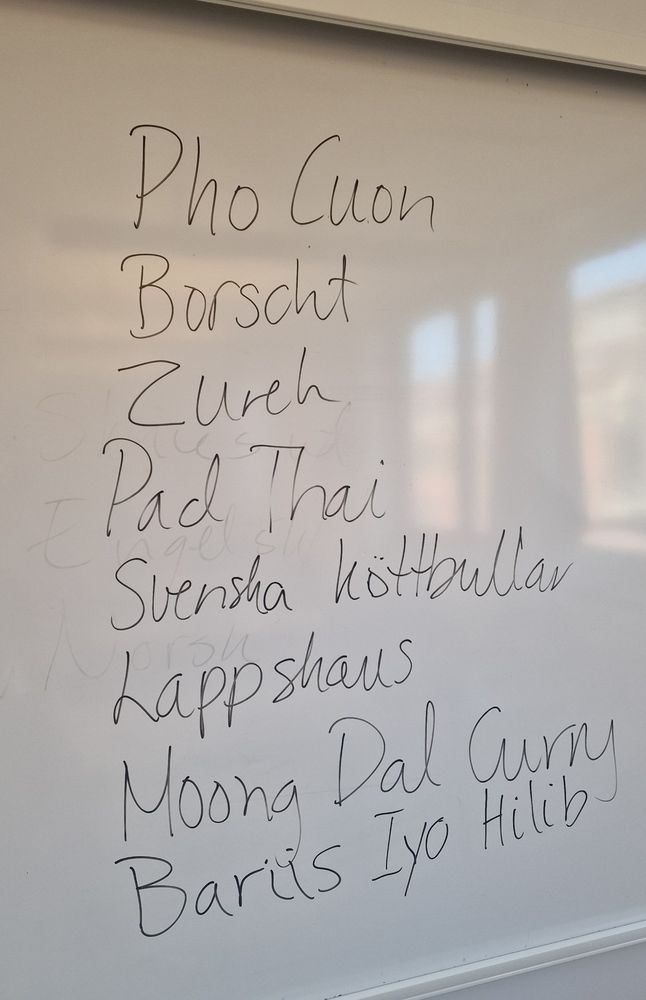 Pho Cuon
Borscht
Zureh
Pad Thai
Svenska köttbullar
Lappshaus
Engelsk
Norsk
Moong Dal Curry
Bariis Iyo Hilib